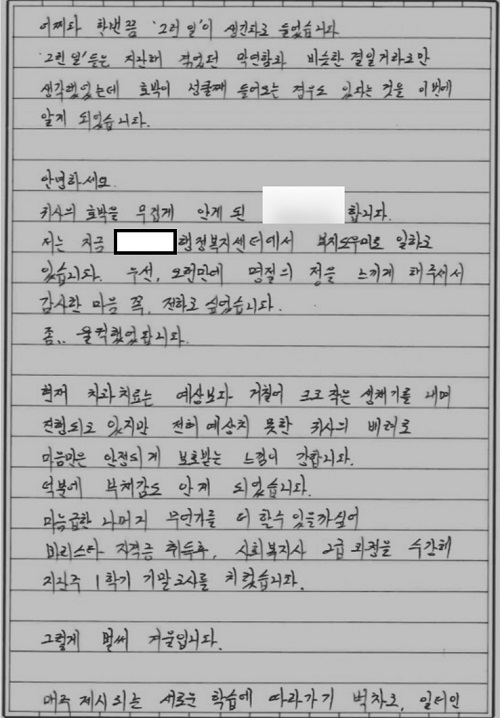 어쩌다 한번쯤 '그런 일'이 생긴다로 들었습니다
'그런 일'들은 지난해 겪었던 막연함과 비슷한 결일거라고만
생각했었는데 호박이 넝쿨째 들어오는 경우도 있다는 것을 이번에
알게 되었습니다.
안녕하세요.
귀사의 호박을 무겁게 안게 된 합니다.
저는 지금 행정복지센터에서 복지도우미로 일하고
있습니다. 우선, 오랜만에 명절의 정을 느끼게 해주셔서
감사한 마음 꼭, 전하고 싶었습니다.
좀.. 울컥했었답니다.
현재 치과치료는 예상보다 거칠어 크고 작은 생채기를 내며
진행되고 있지만 전혀 예상치 못한 귀사의 배려로
마음만은 안정되게 보호받는 느낌이 강합니다.
덕분에 부채감도 안게 되었습니다.
마뜩급한 나머지 무언가를 더 할수 있을까싶어
바리스타 자격증 취득후, 사회복지사 2급 과정을 수강해
지난주 1학기 기말고사를 치렀습니다.
그렇게 벌써 겨울입니다.
매주 제시되는 새로운 학습에 따라가기 벅차고, 일터인